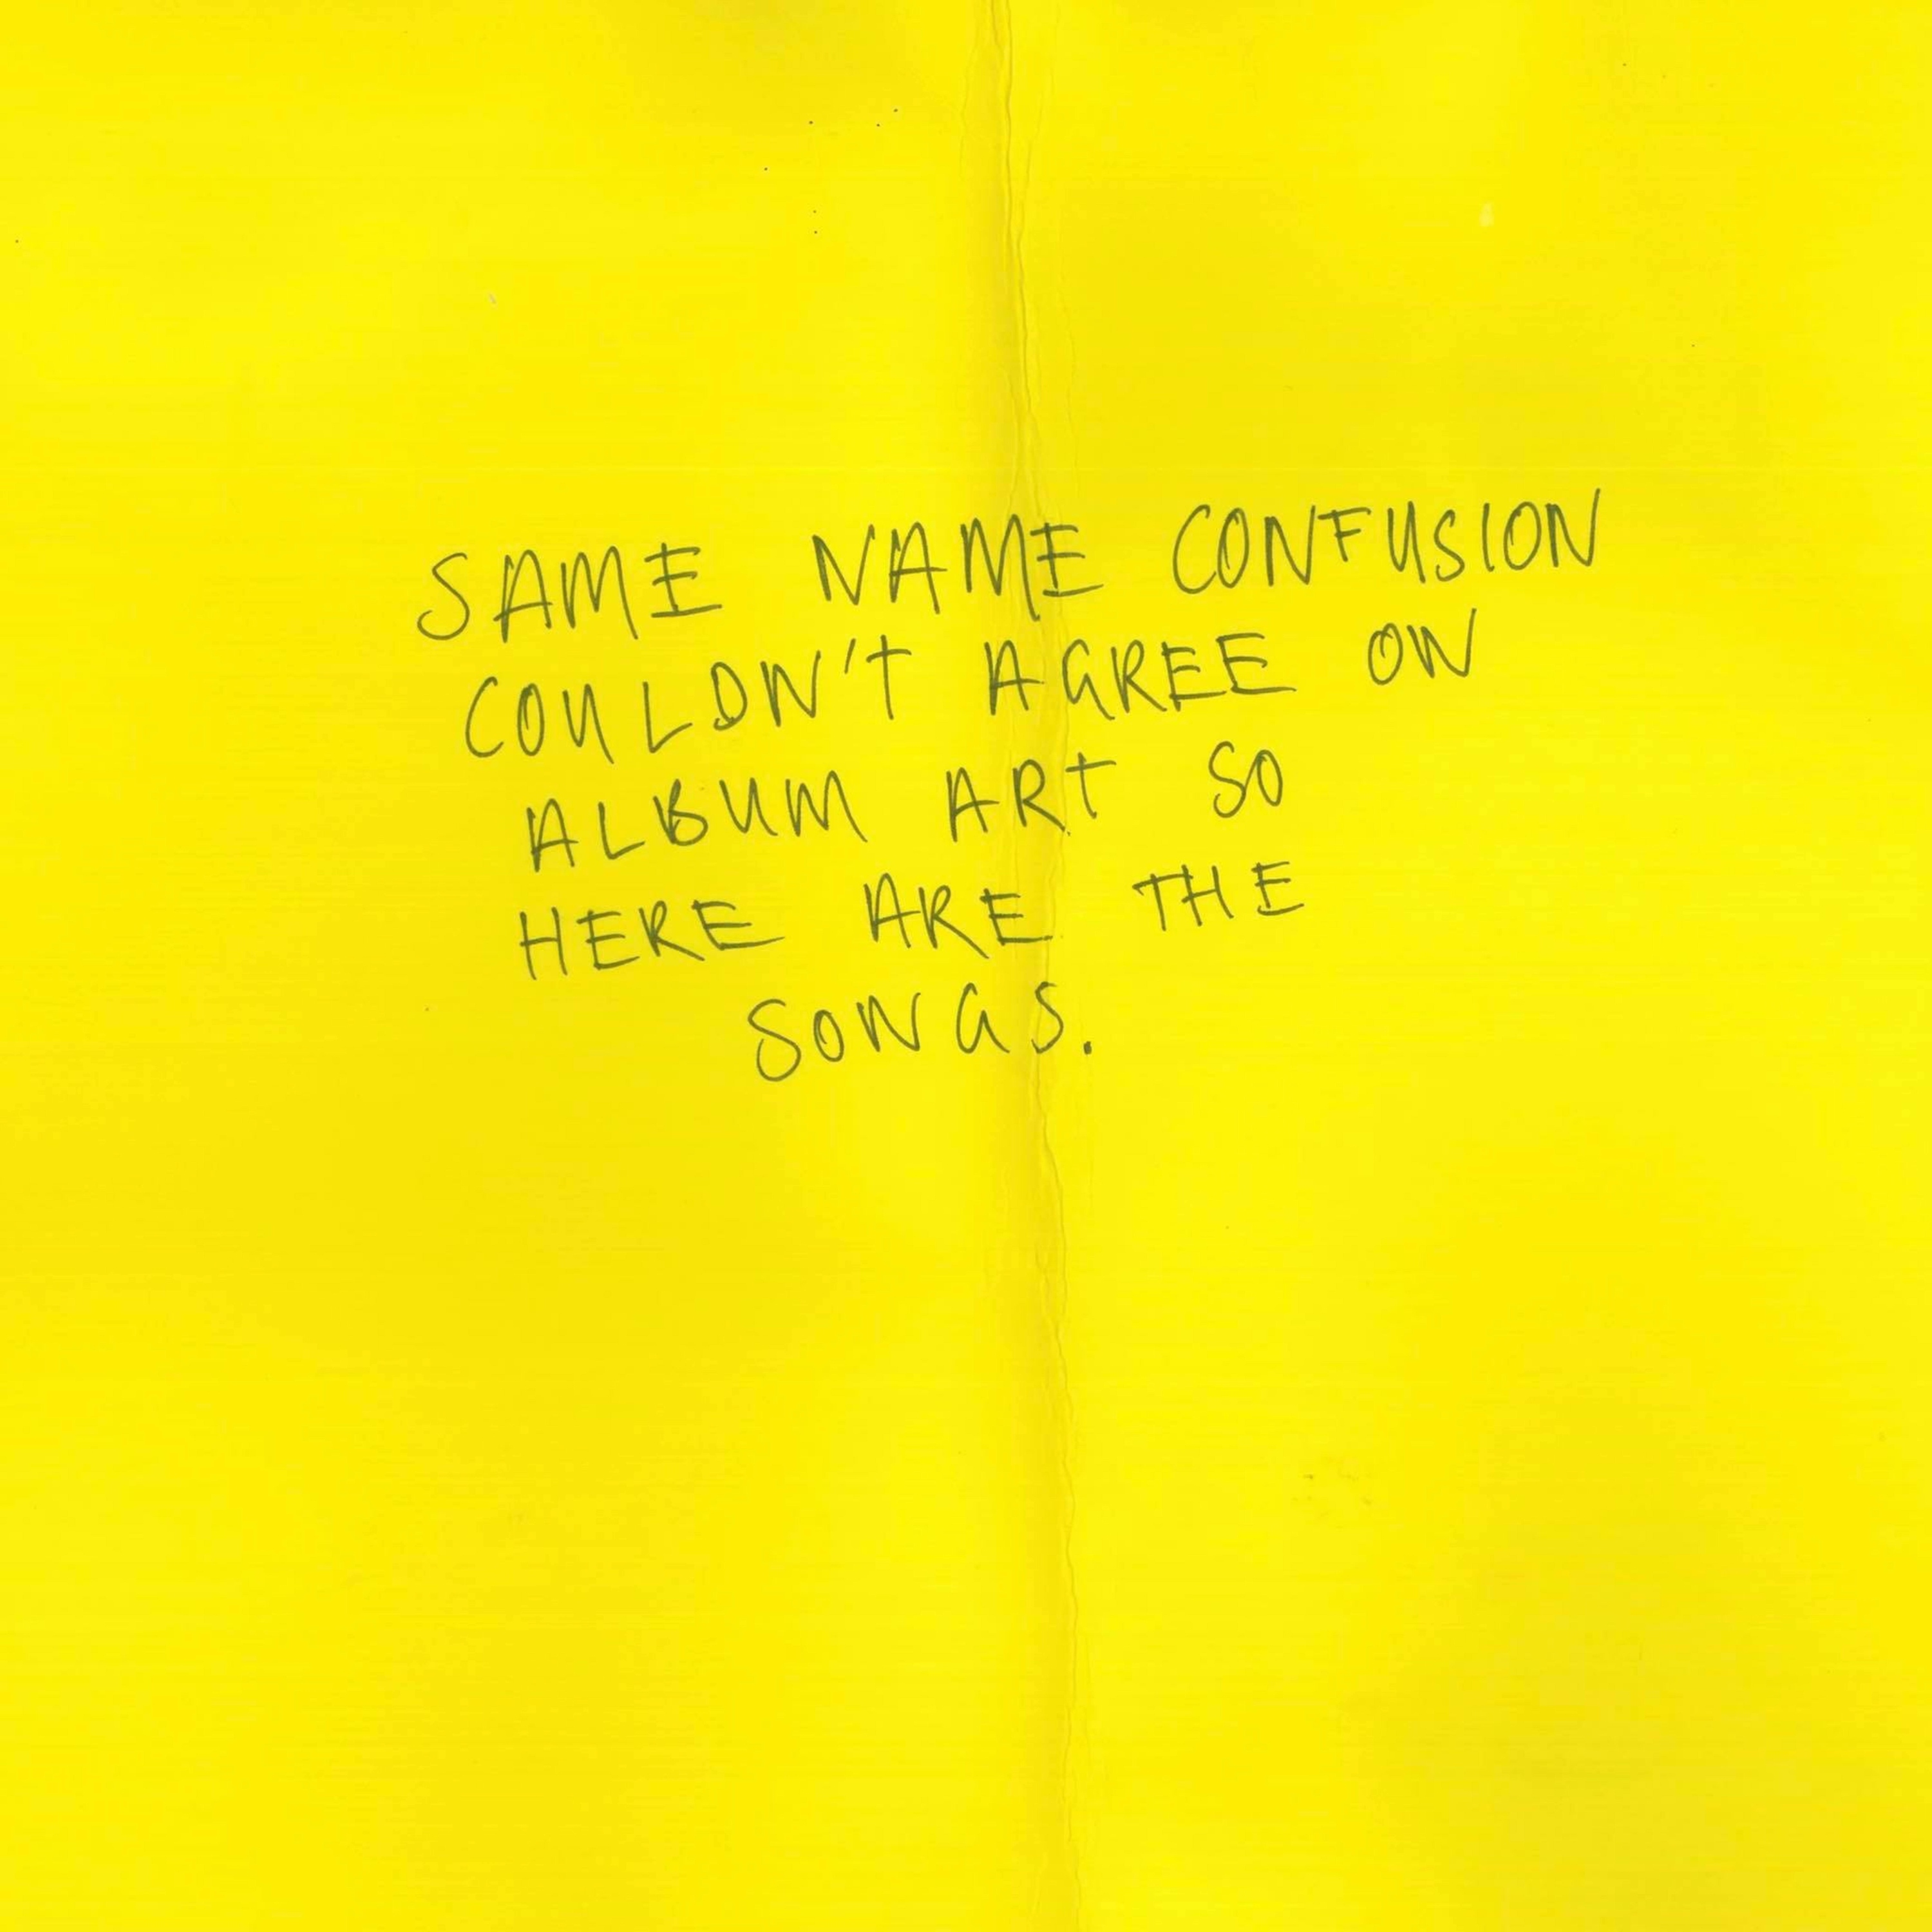 SAME NAME CONFUSION
COULDN'T AGREE ON
ALBUM ART SO
HERE ARE THE
SONGS.